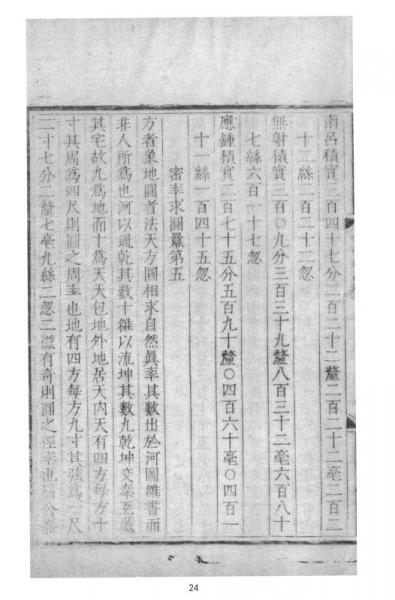 南呂積實三百四十七分二百二十二釐二百二十二毫二百二
十二絲二百二十二忽
無射積實三百〇九分三百三十九釐八百三十二毫六百八十
七絲六百一十七忽
應鍾積實二百七十五分五百九十釐〇四百六十毫〇四百一
十一絲一百四十五忽
密率求圓羃第五
方者象地圓者法天方圓相求自然眞率其數出於河圖雒書而
非人所爲也河以通乾其數十雒以流坤其數九乾坤交泰互藏
其宅故九爲地而十爲天天包地外地居天內天有四方每方十
寸其周爲四尺則圓之周率也地有四方每方九寸其弦爲一尺
二寸七分二釐七毫九絲二忽二微有奇則圓之徑率也
24